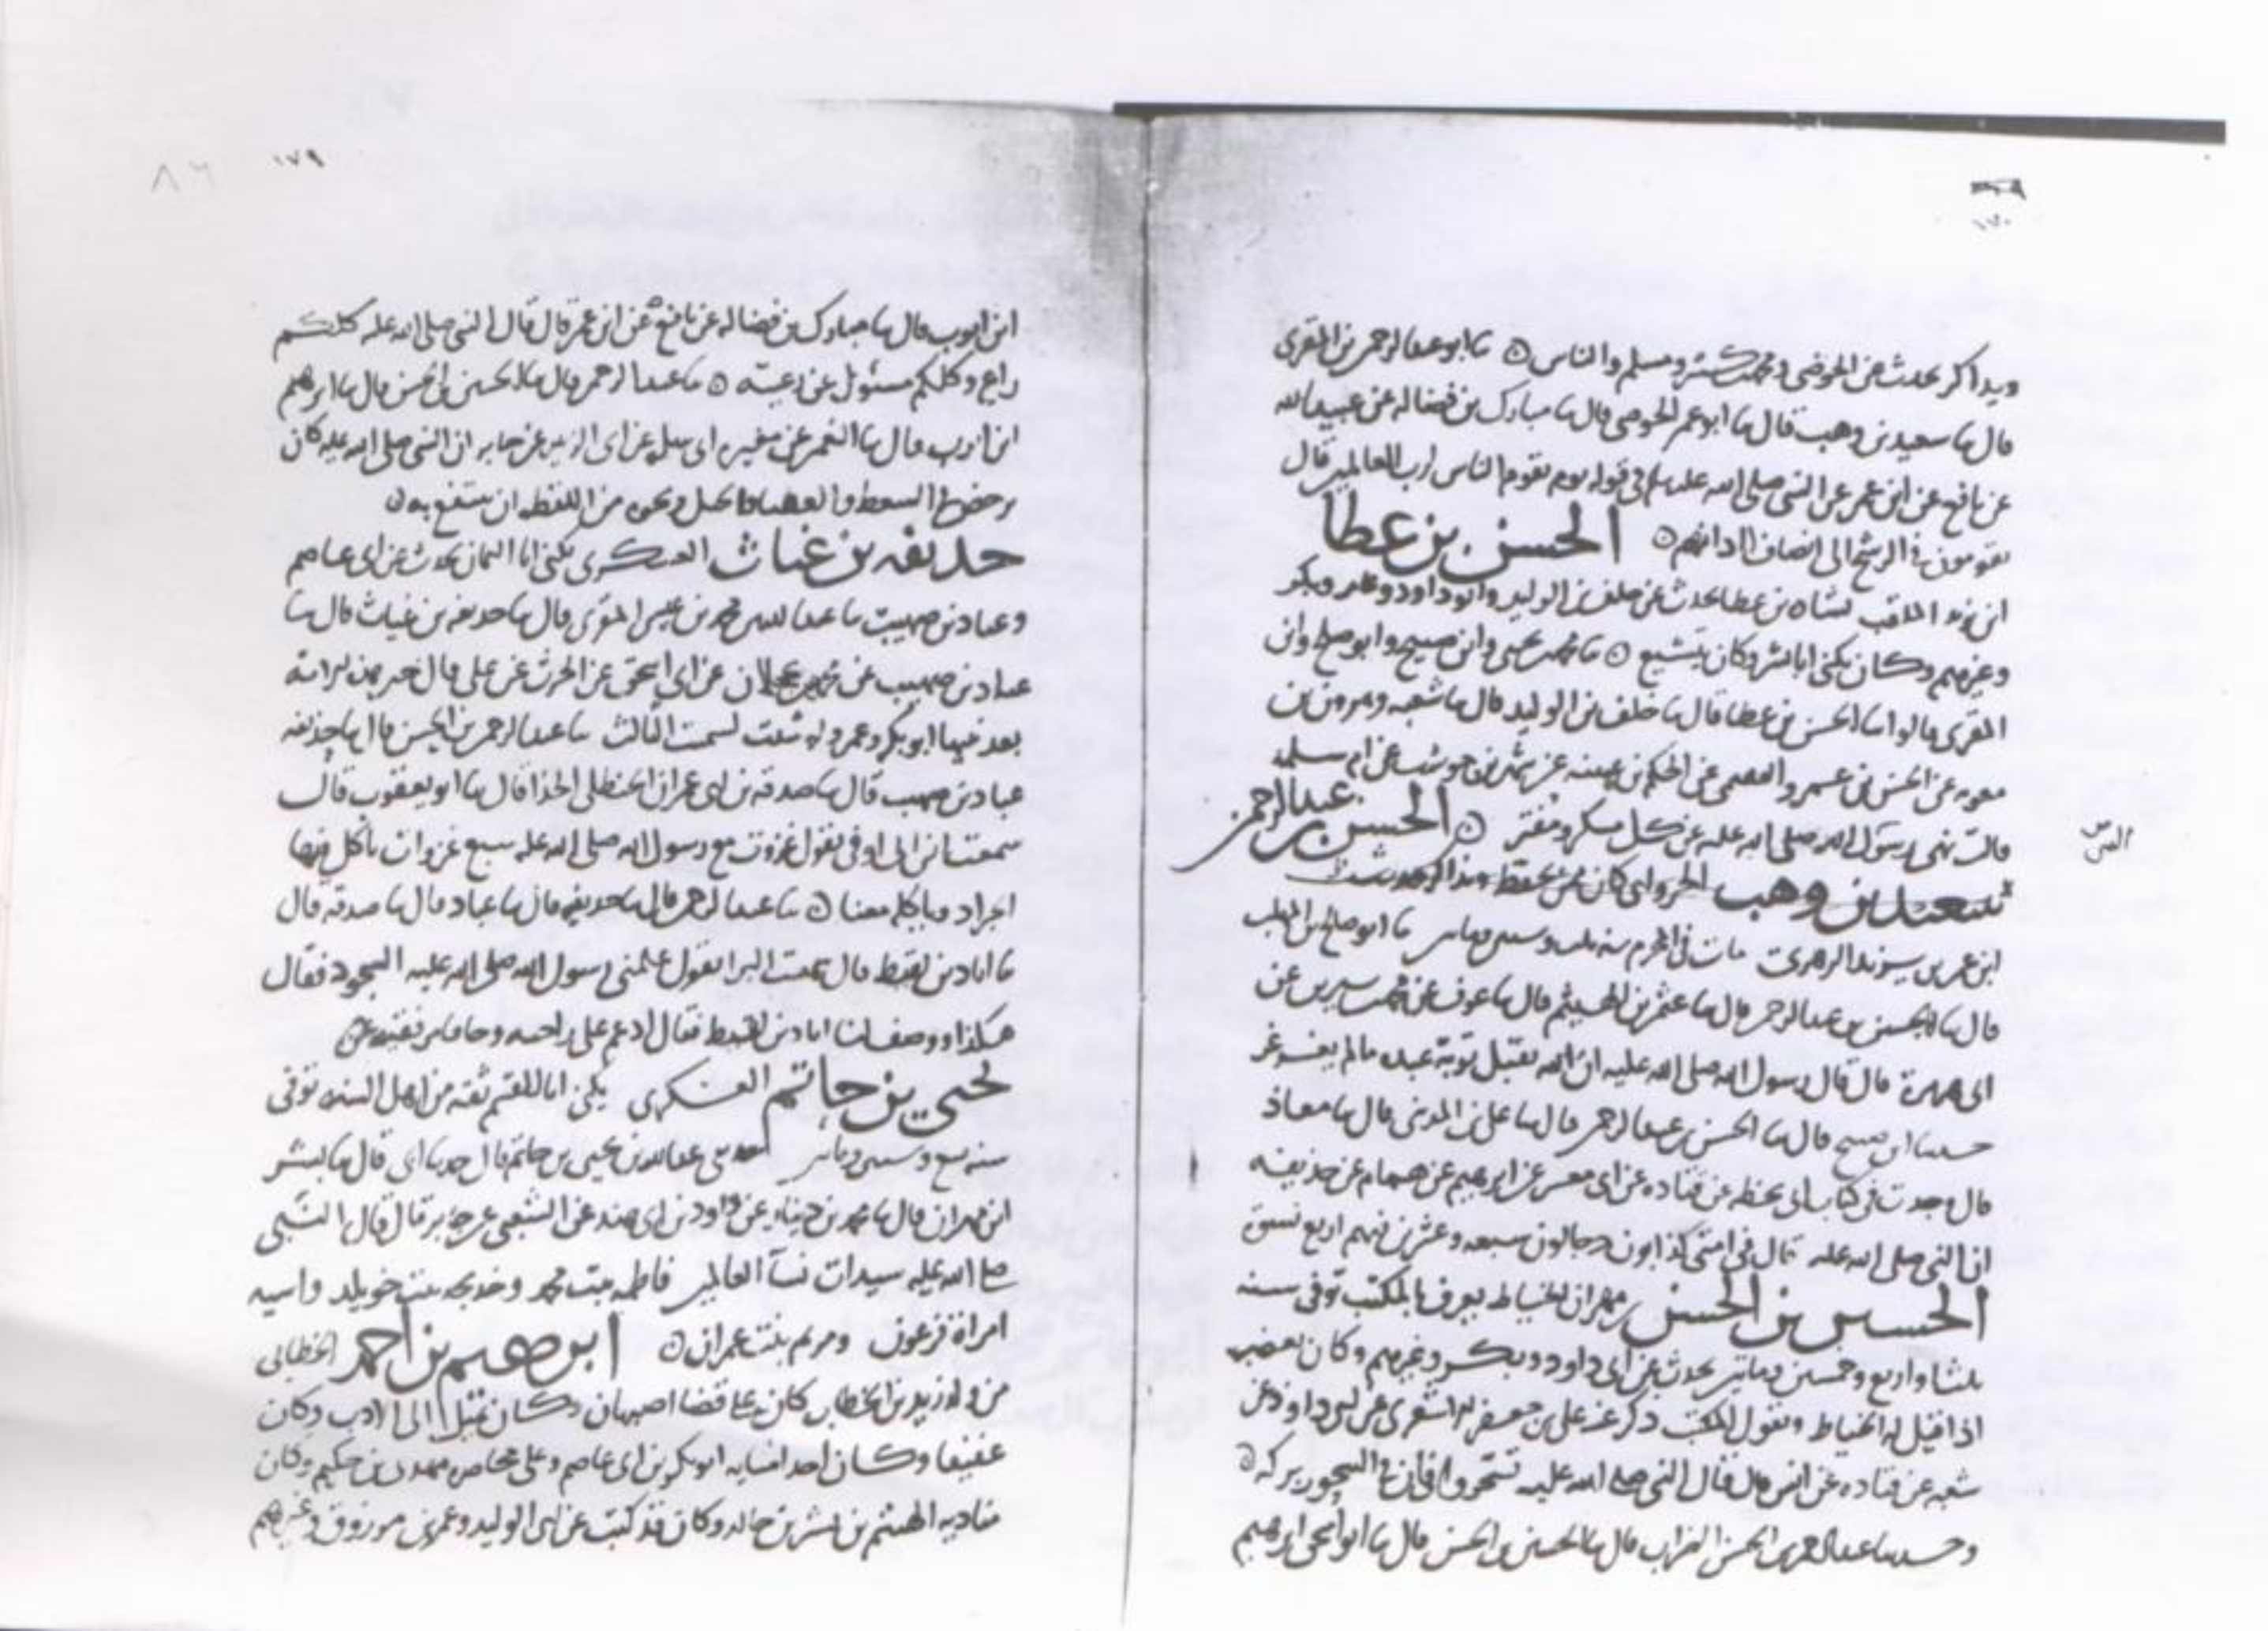 ١٧٠
ويذاكر يحدث عن الحوضي ومحمد بن كثير ومسلم والناس ٥ ثنا ابو عبد الرحمن بن المقرئ
قال ثنا سعيد بن وهب قال ثنا ابو عمر الحوضي قال ثنا مبارك بن فضاله عن عبيد الله
عن نافع عن ابن عمر عن النبي صلى الله عليه وسلم في قوله يوم يقوم الناس لرب العالمين قال
يقومون في الرشح الى انصاف اذانهم ٥ الحسن بن عطا
ابن يزيد الملقب بشاه بن عطا يحدث عن خلف بن الوليد وابو داود وعامر وبكر
وغيرهم وكان يكنى ابا بشر وكان يتشيع ٥ ثنا محمد بن يحيى وابن صبيح وابو صالح وابن
المقرئ قالوا ثنا الحسن بن عطا قال ثنا خلف بن الوليد قال ثنا شعبه ومرون بن
معويه عن الحسن بن عمرو الفقيمي عن الحكم بن عيينه عن شهر بن حوشب عن ام سلمه
قالت نهى رسول الله صلى الله عليه عن كل مسكر ومفتر ٥ الحسن بن عبد الرحمن
الحسن
سعيد بن وهب كان ممن يحفظ ويذاكر
ابن عمر بن يزيد الزهري مات في المحرم سنه ثنا ابو صالح بن المهلب
قال ثنا الحسن بن عبد الرحمن قال ثنا عثمن بن الهيثم قال ثنا عوف عن محمد بن سيرين عن
ابي هريرة قال قال رسول الله صلى الله عليه ان الله يقبل توبة عبده مالم يغرغر
حدثنا ابن صبيح قال ثنا الحسن بن عبد الرحمن قال ثنا علي بن المديني قال ثنا معاذ
قال وجدت في كتاب ابي بخطه عن قتاده عن ابي معشر عن ابرهيم عن همام عن حذيفه
ان النبي صلى الله عليه قال في امتي كذابون دجالون سبعه وعشرين منهم اربع نسوة
الحسين بن الحسن بن مهران الخياط يعرف بالمكتب توفي سنه
ثلث او اربع وخمسين ومايتين يحدث عن ابي داود وبكر وغيرهم وكان يغضب
اذا قيل له الخياط ويقول المكتب ذكر عنه علي بن جعفر الاشعري عن ابي داود عن
شعبه عن قتاده عن انس قال قال النبي صلى الله عليه تسحروا فان في السحور بركه ٥
وحدثنا الحسن الضراب قال ثنا الحسين بن الحسن قال ثنا ابو ابرهيم
١٧٩
٨٦
ابن ايوب قال ثنا مبارك بن فضاله عن نافع عن ابن عمر قال قال النبي صلى الله عليه كلكم
راع وكلكم مسئول عن رعيته ٥ ثنا عبد الرحمن قال ثنا الحسين بن الحسن قال ثنا ابرهيم
ابن ايوب قال ثنا النعمن عن مغيره ابي سلمه عن ابي الزبير عن جابر ان النبي صلى الله عليه كان
يرخص في السوط والعصا والحبل ونحوه من اللقطه ان ينتفع به ٥
حذيفه بن غياث العسكري يكنى ابا اليمان يحدث عن ابي عاصم
وعباد بن صهيب ثنا عبد الله بن محمد بن عيسى المقرئ قال ثنا حذيفه بن غياث قال ثنا
عباد بن صهيب عن محمد بن عجلان عن ابي اسحق عن الحرث عن علي قال خير هذه الامة
بعد نبيها ابو بكر وعمر ولو شئت لسميت الثالث ثنا عبد الرحمن بن الحسن قال ثنا حذيفه
عباد بن صهيب قال ثنا صدقه بن ابي عمران الحنظلي الحذا قال ثنا ابو يعفور قال
سمعت ابن ابي اوفى يقول غزوت مع رسول الله صلى الله عليه سبع غزوات نأكل فيها
الجراد وياكله معنا ٥ ثنا عبد الرحمن قال ثنا حذيفه قال ثنا عباد قال ثنا صدقه قال
ثنا اياد بن لقيط قال سمعت البرا يقول علمني رسول الله صلى الله عليه السجود فقال
هكذا ووصف لنا اياد بن لقيط فقال ادعم على راحتيه وجافا مرفقيه ٥
يحيى بن حاتم العسكري يكنى ابا القسم ثقه من اهل السنه توفي
سنه حدثني عبد الله بن يحيى بن حاتم قال حدثنا ابي قال ثنا بشر
ابن مهران قال ثنا محمد بن دينار عن داود بن ابي هند عن الشعبي عن جابر قال قال النبي
صلى الله عليه سيدات نسآ العالمين فاطمه بنت محمد وخديجه بنت خويلد واسيه
امراة فرعون ومريم بنت عمران ٥ ابرهيم بن احمد الخطابي
من ولد زيد بن الخطاب كان على قضا اصبهان وكان يميل الى الادب وكان
عفيفا وكان احد امنايه ابو بكر بن ابي عاصم وعلى بن حكيم وكان
مناديه الهيثم بن بشر بن خالد وكان قد كتب عن ابي الوليد وعمرو بن مرزوق وغيرهم